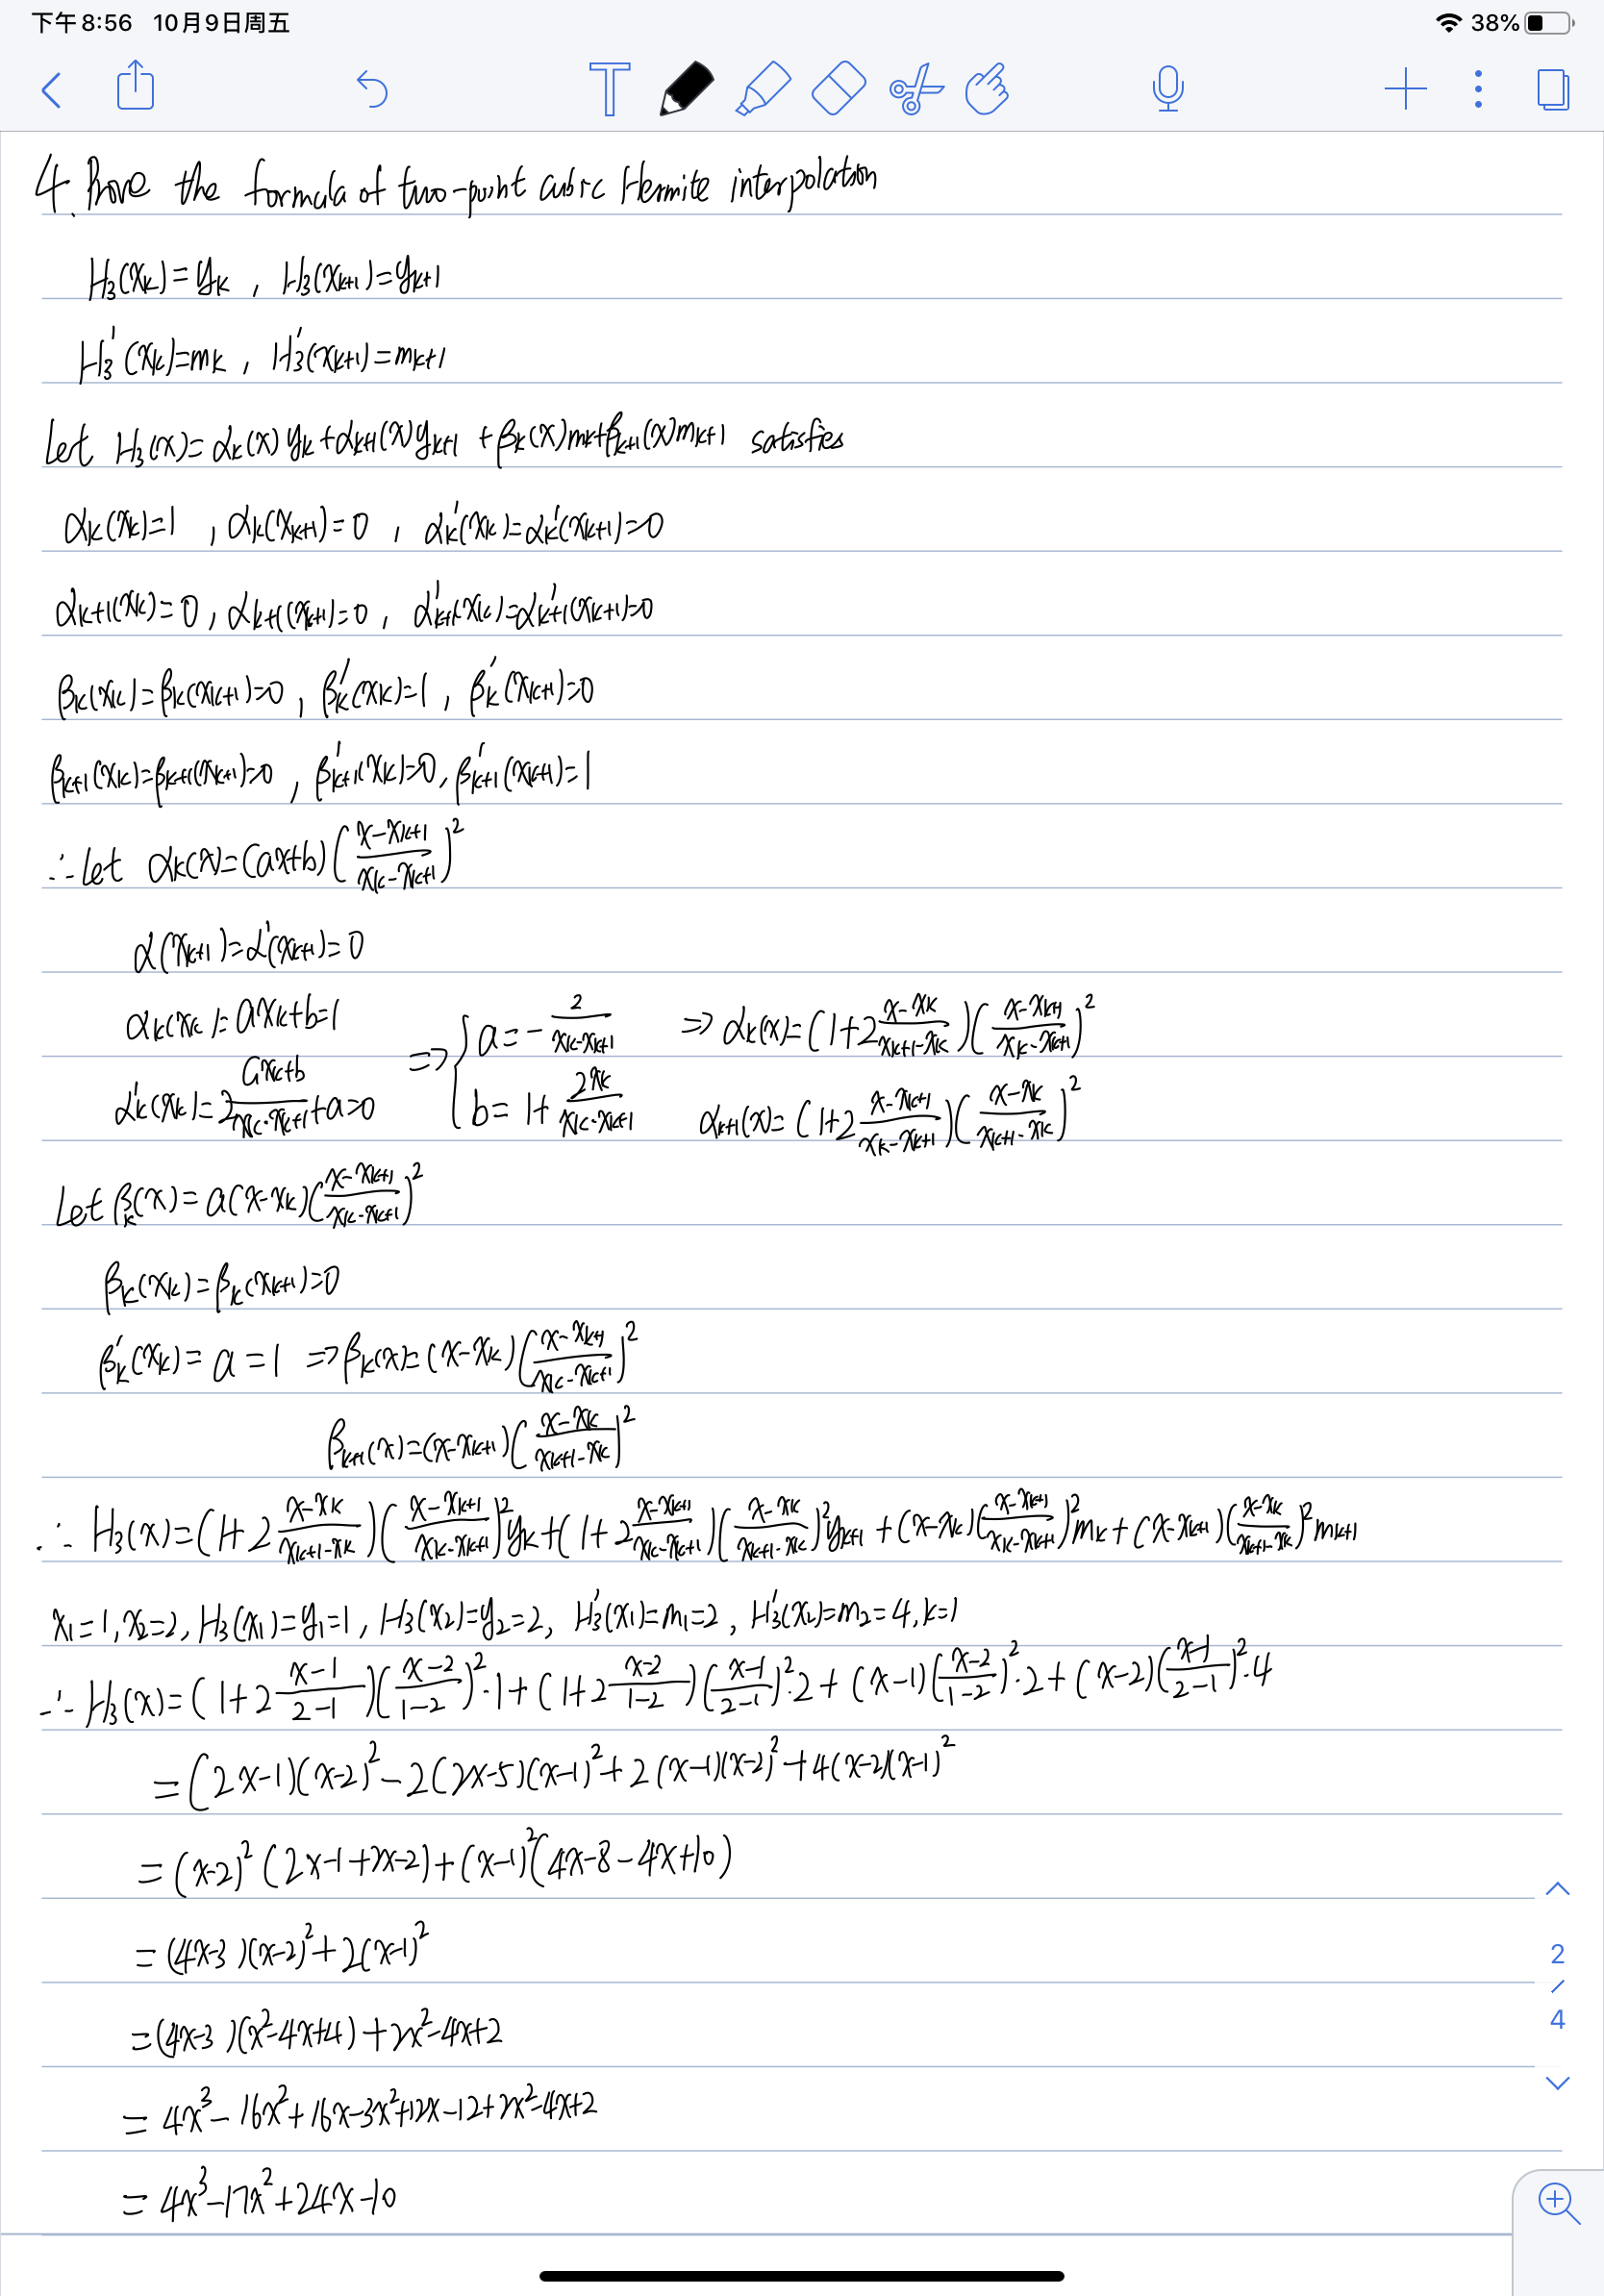 下午8:56 10月9日周五 38%
T
4. Prove the formula of two-point cubic Hermite interpolation
H₃(xₖ)=yₖ , H₃(xₖ₊₁)=yₖ₊₁
H₃'(xₖ)=mₖ , H₃'(xₖ₊₁)=mₖ₊₁
Let H₃(x)=αₖ(x)yₖ+αₖ₊₁(x)yₖ₊₁+βₖ(x)mₖ+βₖ₊₁(x)mₖ₊₁ satisfies
αₖ(xₖ)=1 , αₖ(xₖ₊₁)=0 , αₖ'(xₖ)=αₖ'(xₖ₊₁)=0
αₖ₊₁(xₖ)=0 , αₖ₊₁(xₖ₊₁)=0 , αₖ₊₁'(xₖ)=αₖ₊₁'(xₖ₊₁)=0
βₖ(xₖ)=βₖ(xₖ₊₁)=0 , βₖ'(xₖ)=1 , βₖ'(xₖ₊₁)=0
βₖ₊₁(xₖ)=βₖ₊₁(xₖ₊₁)=0 , βₖ₊₁'(xₖ)=0 , βₖ₊₁'(xₖ₊₁)=1
∴ Let αₖ(x)=(ax+b)((x-xₖ₊₁)/(xₖ-xₖ₊₁))²
α(xₖ₊₁)=α'(xₖ₊₁)=0
αₖ(xₖ)=axₖ+b=1 ⇒ { a=-2/(xₖ-xₖ₊₁) ⇒ αₖ(x)=(1+2(x-xₖ)/(xₖ₊₁-xₖ))((x-xₖ₊₁)/(xₖ-xₖ₊₁))²
αₖ'(xₖ)=2(axₖ+b)/(xₖ-xₖ₊₁)+a=0 b=1+2xₖ/(xₖ-xₖ₊₁) αₖ₊₁(x)=(1+2(x-xₖ₊₁)/(xₖ-xₖ₊₁))((x-xₖ)/(xₖ₊₁-xₖ))²
Let βₖ(x)=a(x-xₖ)((x-xₖ₊₁)/(xₖ-xₖ₊₁))²
βₖ(xₖ)=βₖ(xₖ₊₁)=0
βₖ'(xₖ)=a=1 ⇒ βₖ(x)=(x-xₖ)((x-xₖ₊₁)/(xₖ-xₖ₊₁))²
βₖ₊₁(x)=(x-xₖ₊₁)((x-xₖ)/(xₖ₊₁-xₖ))²
∴ H₃(x)=(1+2(x-xₖ)/(xₖ₊₁-xₖ))((x-xₖ₊₁)/(xₖ-xₖ₊₁))²yₖ+(1+2(x-xₖ₊₁)/(xₖ-xₖ₊₁))((x-xₖ)/(xₖ₊₁-xₖ))²yₖ₊₁+(x-xₖ)((x-xₖ₊₁)/(xₖ-xₖ₊₁))²mₖ+(x-xₖ₊₁)((x-xₖ)/(xₖ₊₁-xₖ))²mₖ₊₁
x₁=1, x₂=2, H₃(x₁)=y₁=1, H₃(x₂)=y₂=2, H₃'(x₁)=m₁=2, H₃'(x₂)=m₂=4, k=1
∴ H₃(x)=(1+2(x-1)/(2-1))((x-2)/(1-2))²·1+(1+2(x-2)/(1-2))((x-1)/(2-1))²·2+(x-1)((x-2)/(1-2))²·2+(x-2)((x-1)/(2-1))²·4
=(2x-1)(x-2)²-2(2x-5)(x-1)²+2(x-1)(x-2)²+4(x-2)(x-1)²
=(x-2)²(2x-1+2x-2)+(x-1)²(4x-8-4x+10)
=(4x-3)(x-2)²+2(x-1)²
=(4x-3)(x²-4x+4)+2x²-4x+2
=4x³-16x²+16x-3x²+12x-12+2x²-4x+2
=4x³-17x²+24x-10
2
/
4